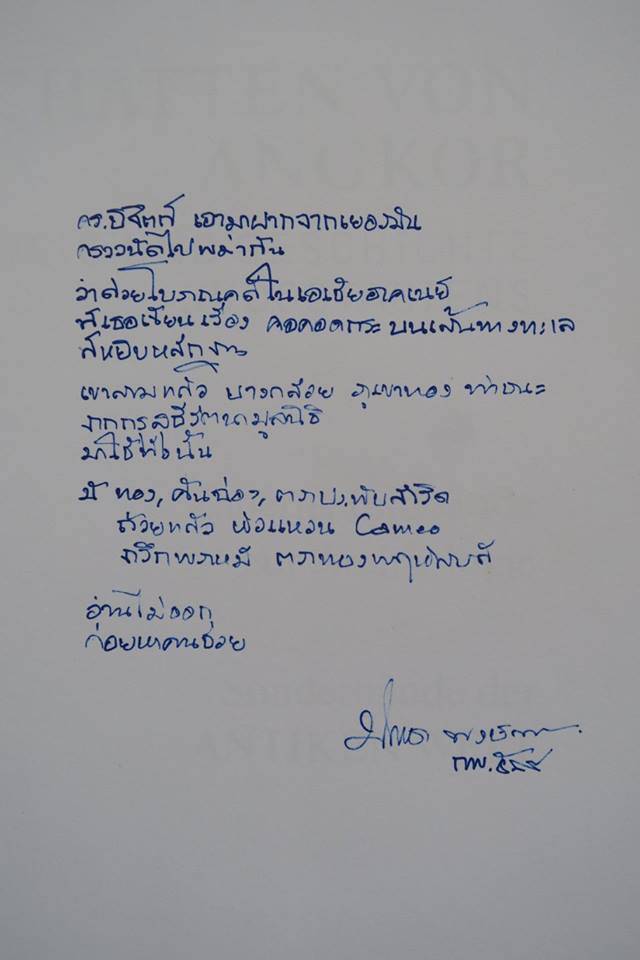 HATTEN VON
ANGKOR
ดร.บีริตต์ เอามาฝากจากเยอรมัน
คราวนัดไปพม่ากัน
ว่าด้วยโบราณคดีในเอเชียอาคเนย์
มีเธอเขียนเรื่อง คอคอดกระ บนเส้นทางทะเล
มีหยิบหลักฐาน
เขาสามแก้ว บางกล้วย ภูเขาทอง ท่าชนะ
จากกรุสุธีรัตนามูลนิธิ
มาใช้ทั้งนั้น
มี ทอง, คันฉ่อง, ตราประทับสำริด
ถ้วยแก้ว หัวแหวน Cameo
จารึกพราหมี ตราทอง
อ่านไม่ออก
ค่อยหาคนช่วย
กพ. ๕๔
Sonderbände der
ANTIKEN